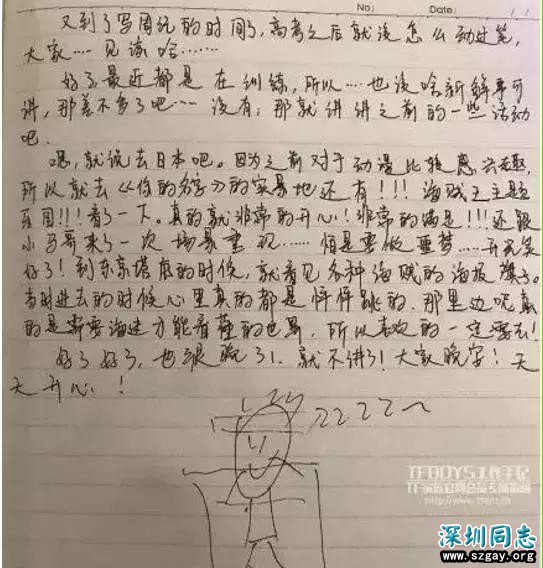 No:
Date:
又到了写周记的时间了,高考之后就没怎么动过笔,
大家……见谅哈……
好了,最近都是在训练,所以……也没啥新鲜事可
讲,那差不多了吧……没有,那就讲讲之前的一些活动
吧.
嗯,就说去日本吧。因为之前对于动漫比较感兴趣,
所以就去《你的名字》的实景地还有!!!海贼王主题
乐园!!!看了一下。真的就非常的开心!非常的满足!!!还跟
小马哥来了一次场景重现……怕是要做噩梦……开玩笑
好了!到东京塔底的时候,就看见各种海贼的海报旗子。
当时进去的时候心里真的都是怦怦跳的,那里边呢真
的是需要海迷才能看懂的世界,所以喜欢的一定要去!
好了好了,也很晚了!就不讲了!大家晚安!天
天开心!
ZZZZ~
TFBOYS工作手记
深圳同志
www.szgay.org